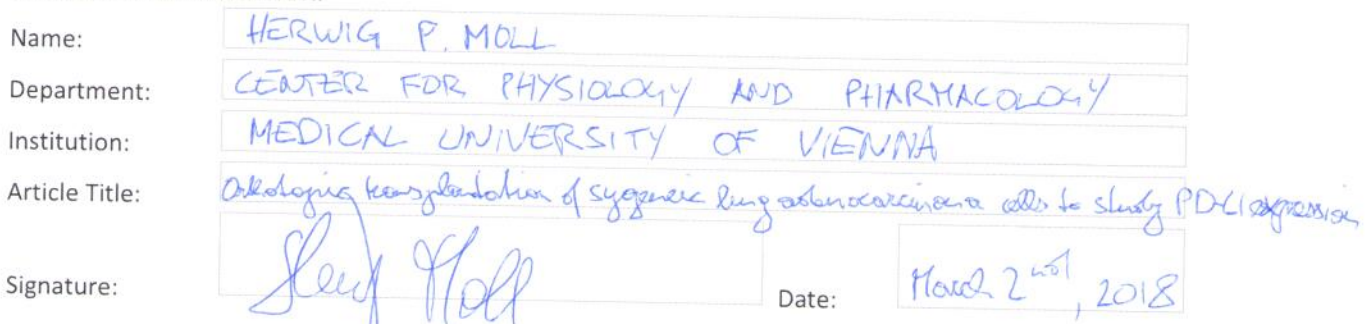 Name: HERWIG P. MOLL
Department: CENTER FOR PHYSIOLOGY AND PHARMACOLOGY
Institution: MEDICAL UNIVERSITY OF VIENNA
Article Title: Orthotopic transplantation of sygeneic lung adenocarcinoma cells to study PD-L1 expression
Signature: Herwig Moll Date: March 2nd, 2018